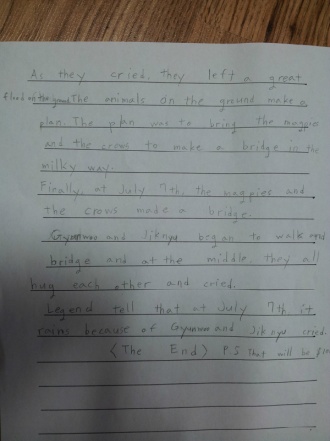 As they cried, they left a great
flood on the ground The animals on the ground make a
plan. The plan was to bring the magpies
and the crows to make a bridge in the
milky way.
Finally, at July 7th, the magpies and
the crows made a bridge.
Gyunwoo and Jiknyu began to walk
bridge and at the middle, they all
hug each other and cried.
Legend tell that at July 7th, it
rains because of Gyunwoo and Jiknyu cried.
<The End> PS that will be